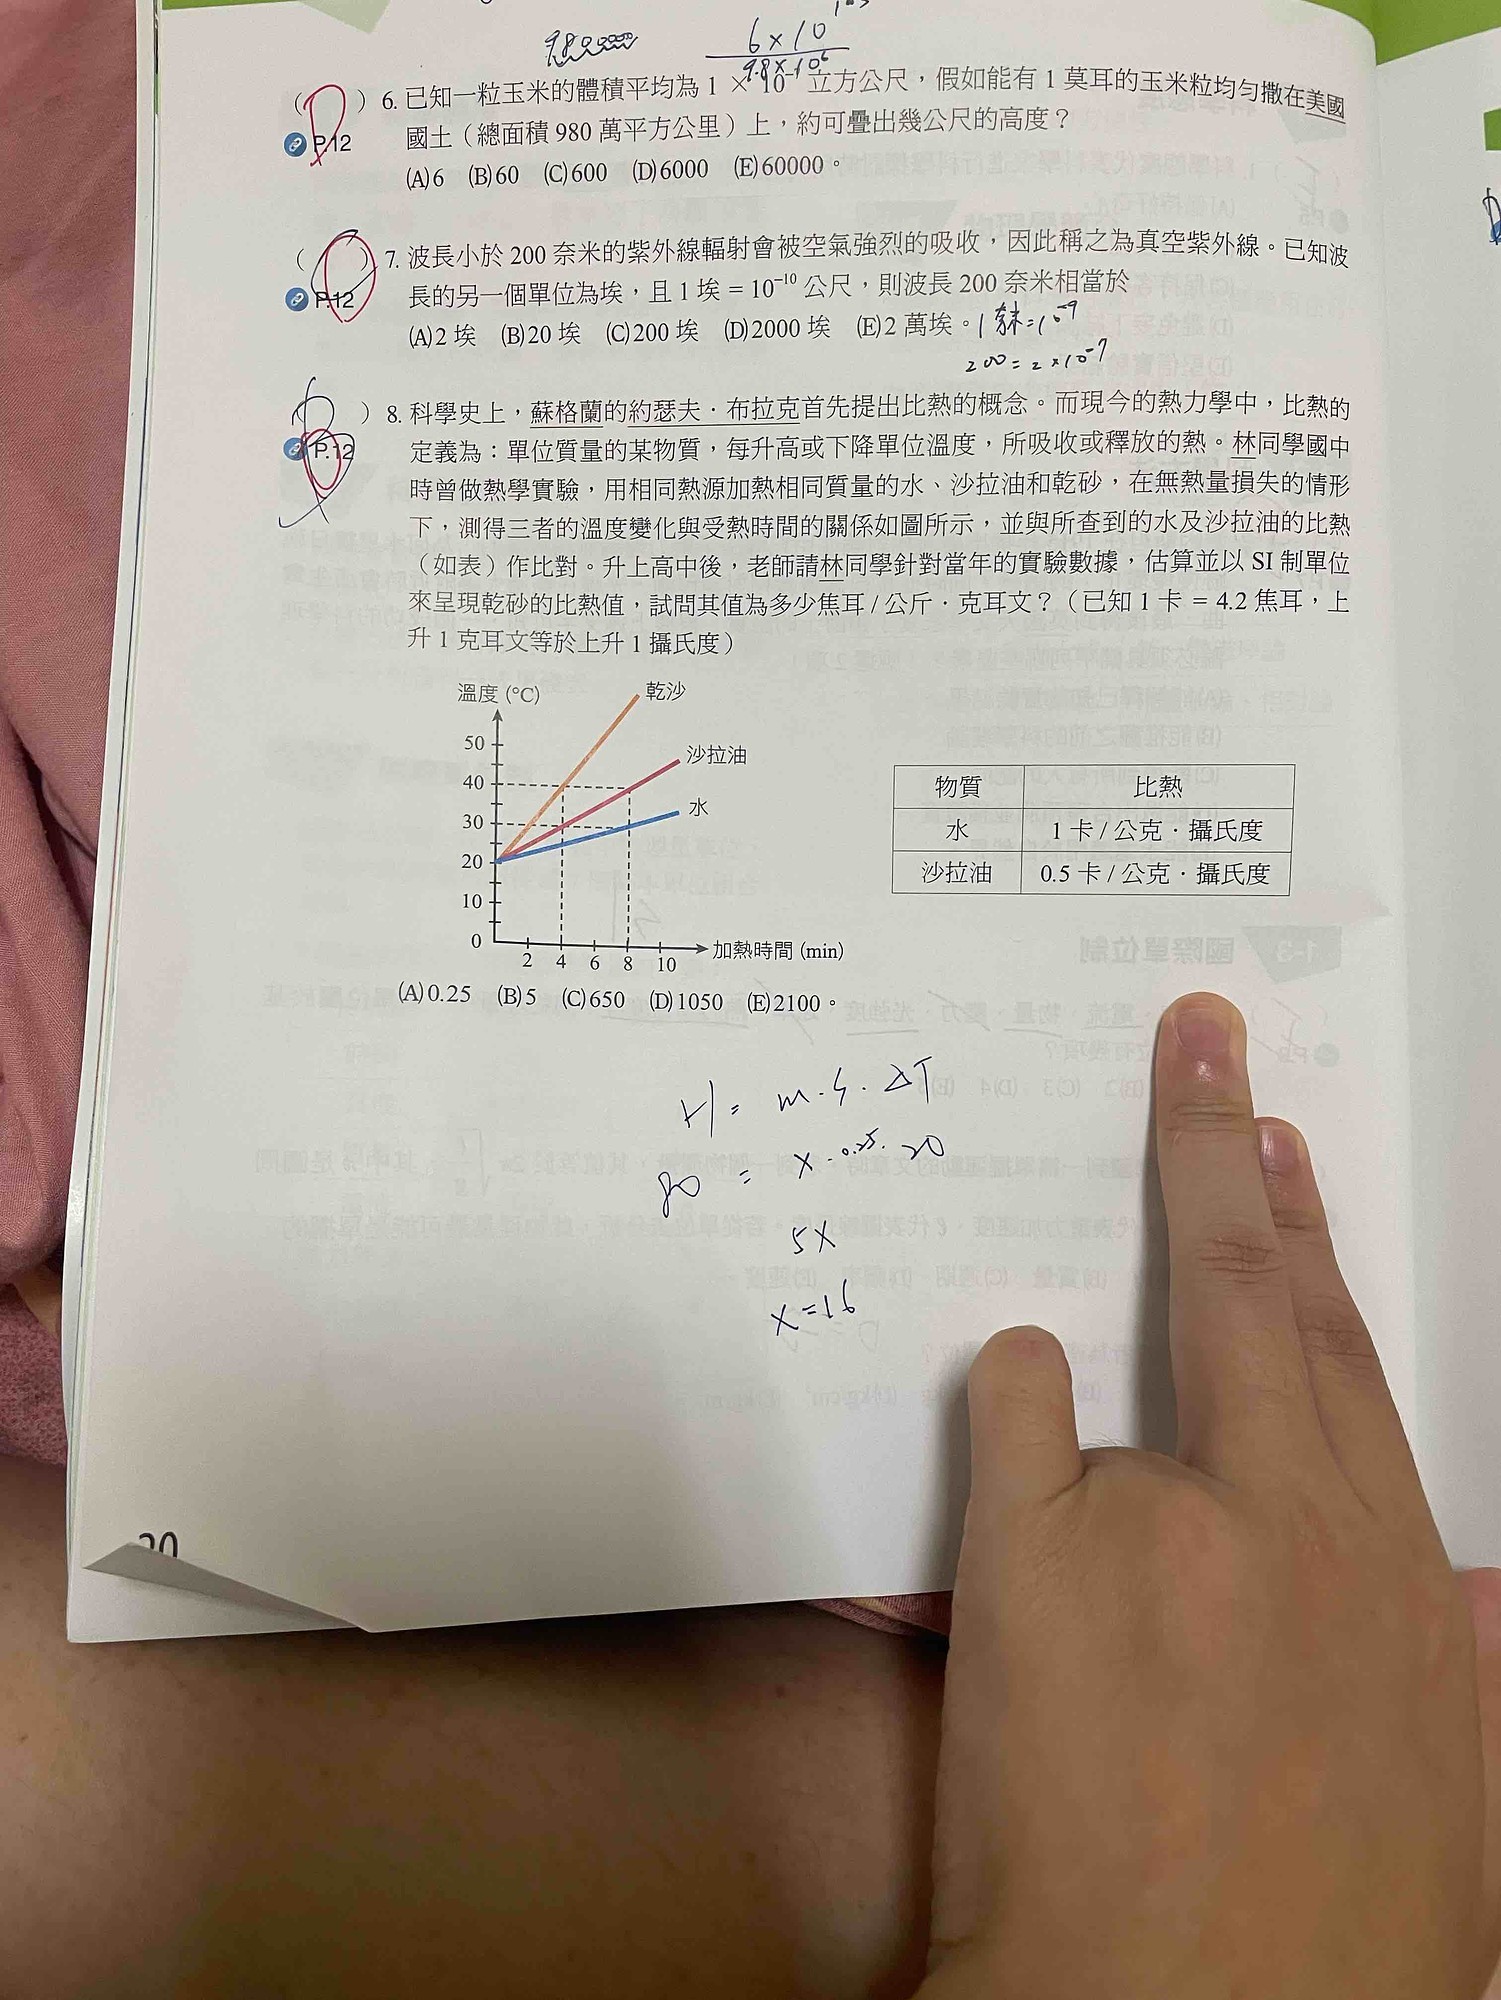 6 × 10
9.8 × 10⁶
( ) 6. 已知一粒玉米的體積平均為 1 × 10⁻ 立方公尺，假如能有 1 莫耳的玉米粒均勻撒在美國
P.12 國土（總面積 980 萬平方公里）上，約可疊出幾公尺的高度？
(A)6 (B)60 (C)600 (D)6000 (E)60000。
( ) 7. 波長小於 200 奈米的紫外線輻射會被空氣強烈的吸收，因此稱之為真空紫外線。已知波
P.12 長的另一個單位為埃，且 1 埃 = 10⁻¹⁰ 公尺，則波長 200 奈米相當於
(A)2 埃 (B)20 埃 (C)200 埃 (D)2000 埃 (E)2 萬埃。1 奈米=10⁻⁹
200 = 2 × 10⁻⁷
) 8. 科學史上，蘇格蘭的約瑟夫．布拉克首先提出比熱的概念。而現今的熱力學中，比熱的
P.12 定義為：單位質量的某物質，每升高或下降單位溫度，所吸收或釋放的熱。林同學國中
時曾做熱學實驗，用相同熱源加熱相同質量的水、沙拉油和乾砂，在無熱量損失的情形
下，測得三者的溫度變化與受熱時間的關係如圖所示，並與所查到的水及沙拉油的比熱
（如表）作比對。升上高中後，老師請林同學針對當年的實驗數據，估算並以 SI 制單位
來呈現乾砂的比熱值，試問其值為多少焦耳 / 公斤．克耳文？（已知 1 卡 = 4.2 焦耳，上
升 1 克耳文等於上升 1 攝氏度）
溫度 (°C)
乾沙
沙拉油
水
50
40
30
20
10
0
2 4 6 8 10
加熱時間 (min)
物質 比熱
水 1 卡 / 公克．攝氏度
沙拉油 0.5 卡 / 公克．攝氏度
(A)0.25 (B)5 (C)650 (D)1050 (E)2100。
H = m · S · ΔT
80 = x · 0.25 · 20
5x
x = 16